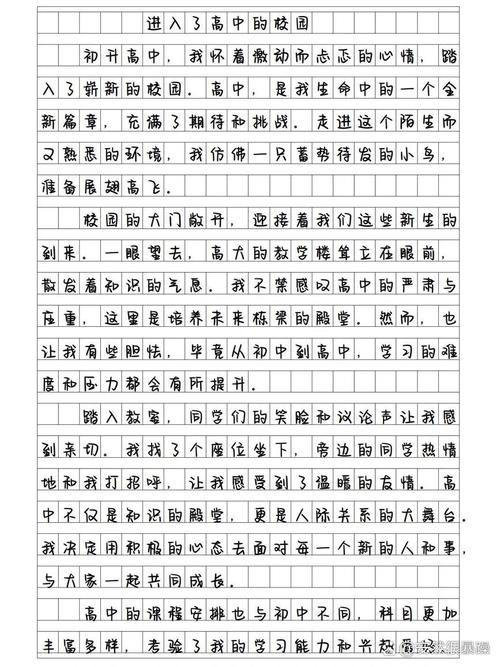 进入了高中的校园
初升高中，我怀着激动而忐忑的心情，踏
入了崭新的校园．高中，是我生命中的一个全
新篇章，充满了期待和挑战．走进这个陌生而
又熟悉的环境，我仿佛一只蓄势待发的小鸟，
准备展翅高飞．
校园的大门敞开，迎接着我们这些新生的
到来．一眼望去，高大的教学楼耸立在眼前，
散发着知识的气息．我不禁感叹高中的严肃与
庄重，这里是培养未来栋梁的殿堂．然而，也
让我有些胆怯，毕竟从初中到高中，学习的难
度和压力都会有所提升．
踏入教室，同学们的笑脸和议论声让我感
到亲切．我找了个座位坐下，旁边的同学热情
地和我打招呼，让我感受到了温暖的友情．高
中不仅是知识的殿堂，更是人际关系的大舞台．
我决定用积极的心态去面对每一个新的人和事，
与大家一起共同成长．
高中的课程安排也与初中不同，科目更加
丰富多样，考验了我的学习能力和兴